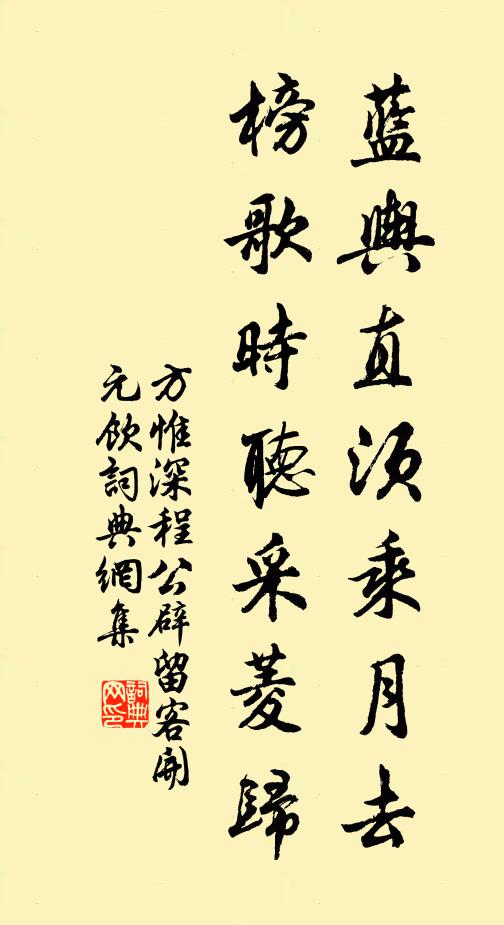 藍輿直須乘月去
榜歌時聽采菱歸
方惟深程公辟留客開
元飲詞典網集
詞典
网印